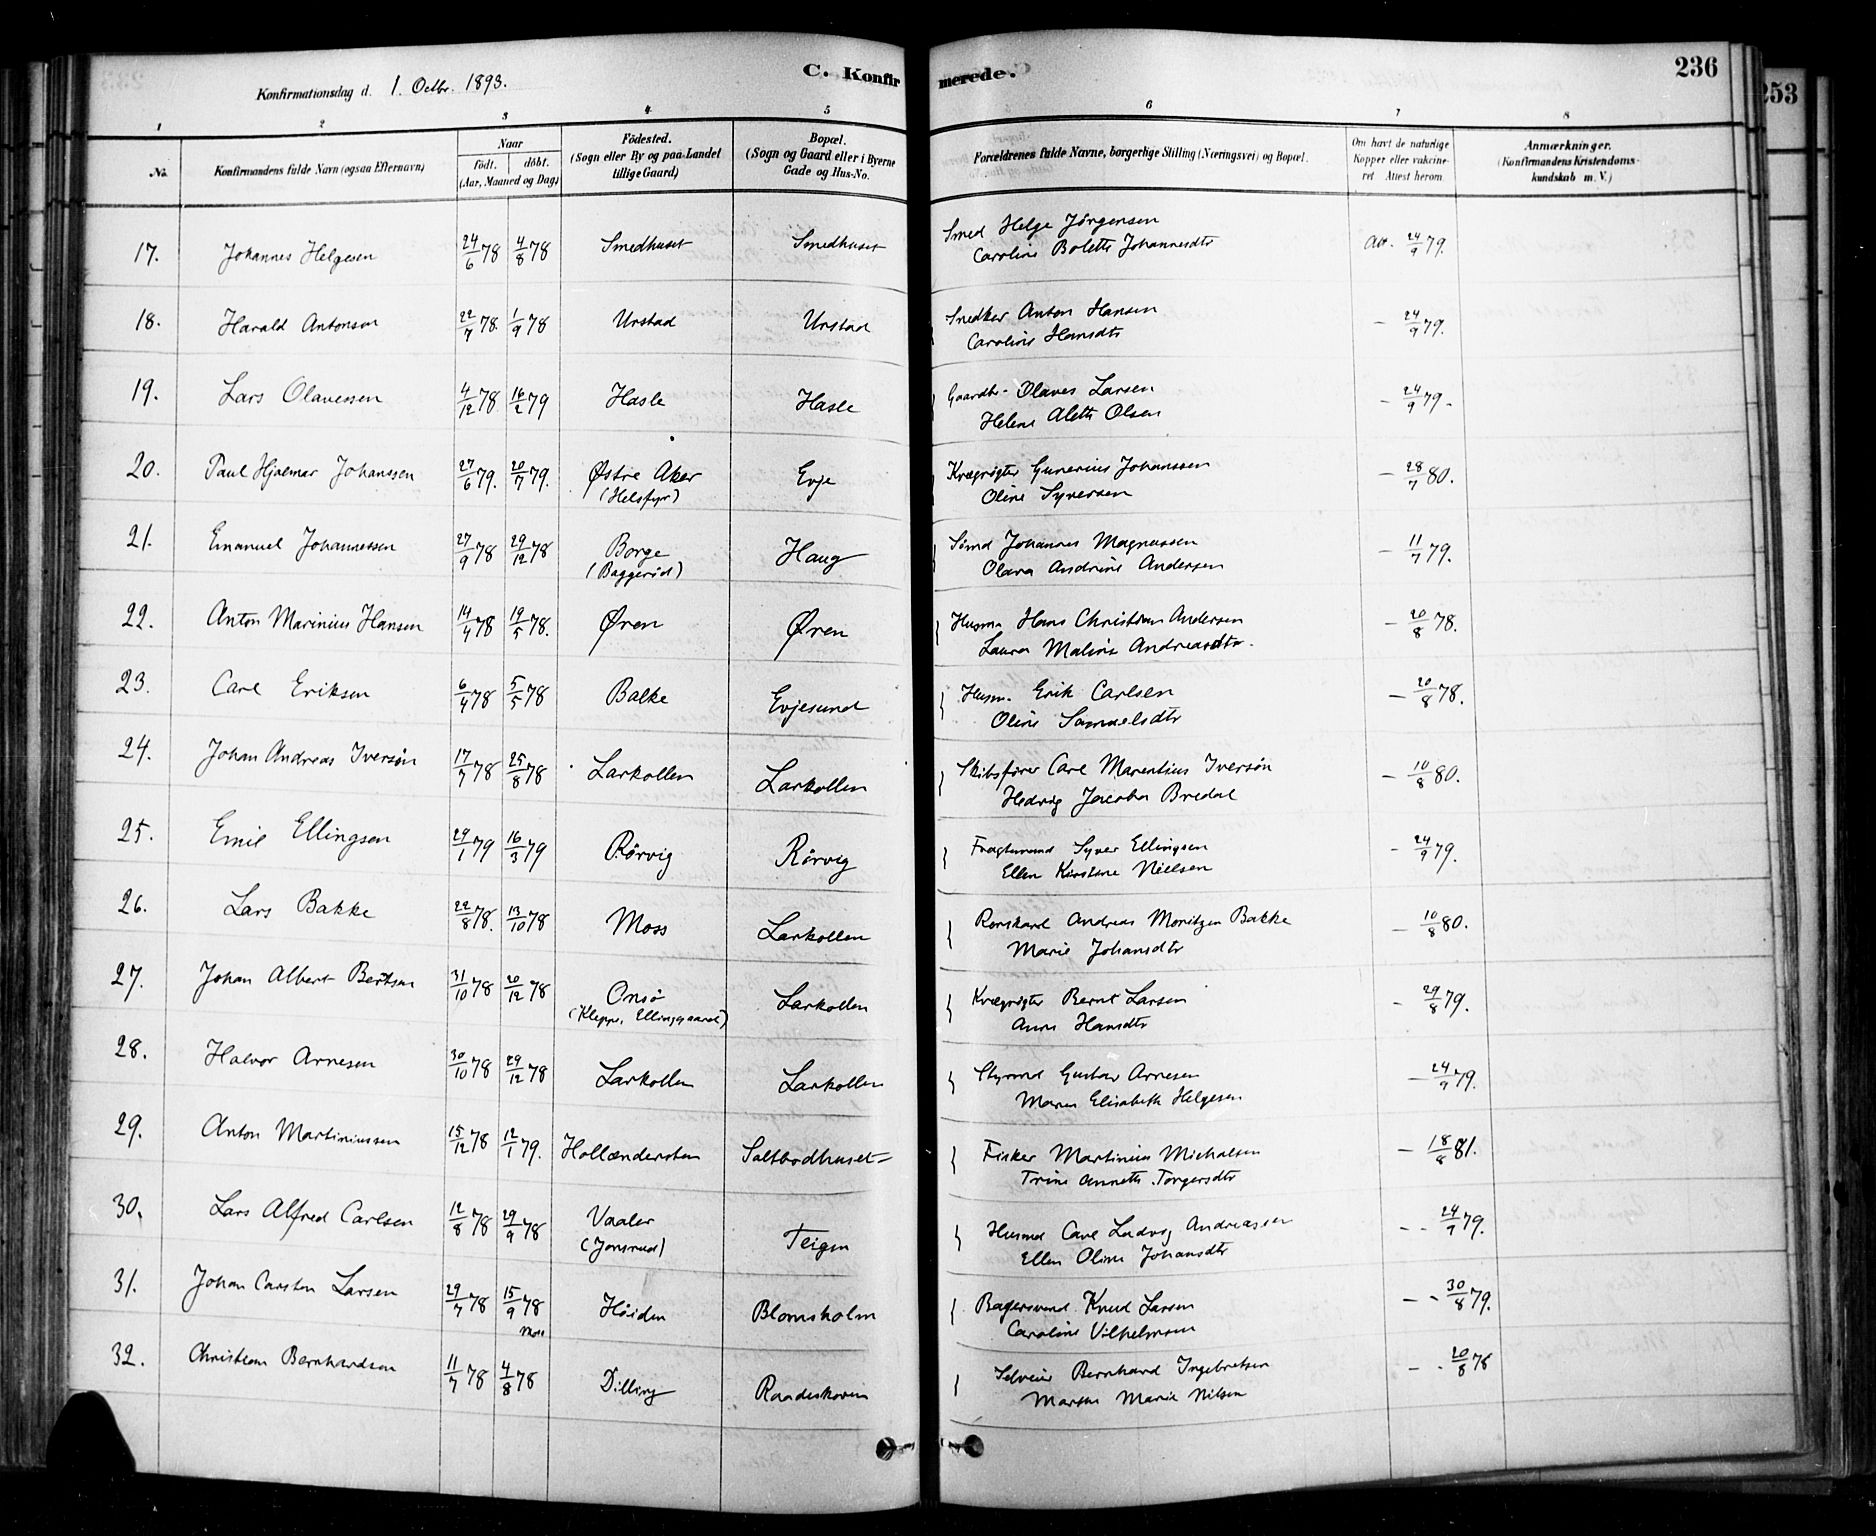 236
253
C. Konfirmerede.
Konfirmationsdag d. 1. Octbr. 1893.
1 2 3 4 5 6 7 8
No. Konfirmandens fulde Navn (ogsaa Efternavn) Naar født. døbt. (Aar, Maaned og Dag) Fødested. (Sogn eller By og paa Landet tillige Gaard) Bopæl. (Sogn og Gaard eller i Byerne Gade og Hus-No. Forældrenes fulde Navne, borgerlige Stilling (Næringsvei) og Bopæl. Om havt de naturlige Kopper eller vakcineret Attest herom. Anmærkninger. (Konfirmandens Kristendomskundskab m. V.)
17. Johannes Helgesen 24/6 78 4/8 78 Smedhuset Smedhuset Smed Helge Jörgensen Att. 24/9 79.
Caroline Bolette Johannesdtr
18. Harald Antonsen 22/7 78. 1/9 78 Urstad Urstad Snedker Anton Hansen – 24/9 79.
Caroline Hansdtr
19. Lars Olavessen 4/12 78 16/2 79 Hasle Hasle Gaardbr. Olaves Larsen – 24/9 79.
Helene Alette Olsen
20. Paul Hjalmar Johanssen 27/6 79. 20/7 79. Østre Aker Evje Kvægrögter Gunerius Johanssen – 28/7 80.
(Helsfyr) Oline Syversen
21. Emanuel Johannessen 27/9 78 29/12 78 Borge Haug Sömd Johannes Magnussen – 11/7 79.
(Baggeröd) Olava Andrine Andersen
22. Anton Marinius Hansen 14/4 78 19/5 78. Øren Øren Husm. Hans Christian Andersen – 20/8 78.
Laura Maline Andreasdtr.
23. Carl Eriksen 6/4 78 5/5 78 Balke Evjesund Husm. Erik Carlsen – 20/8 78.
Oline Samuelsdtr
24. Johan Andreas Iversön 17/7 78 25/8 78 Larkollen Larkollen Skibsfører Carl Marentius Iversön – 10/8 80.
Hedvig Jacoba Bredal
25. Emil Ellingsen 29/1 79 16/3 79 Rörvig Rörvig Fragtemand Syver Ellingsen – 24/9 79.
Ellen Kirstine Nielsen
26. Lars Bakke 22/8 78. 13/10 78 Moss Larkollen Rorskarl Andreas Moritzen Bakke – 10/8 80.
Marie Johansdtr
27. Johan Albert Berntsen 31/10 78 20/12 78 Onsö Larkollen Kvægrögter Bernt Larsen – 29/8 79.
(Kleppe, Ellinggaard) Anne Hansdtr
28. Halvor Arnesen 30/10 78 29/12 78 Larkollen Larkollen Styrmd Gustav Arnesen – 24/9 79.
Maren Elisabeth Helgesen
29. Anton Martiniussen 15/12 78 12/1 79. Hollændersten Saltbodhuset Fisker Martinius Michalsen – 18/8 81.
Trine Annette Torgersdtr
30. Lars Alfred Carlsen 12/8 78 29/9 78 Vaaler Teigen Husmd Carl Ludvig Andreassen – – 24/9 79.
(Jonsrud) Ellen Oline Johansdtr
31. Johan Carsten Larsen 29/7 78 15/9 78 Höiden Blomsholm Bagersvend Knud Larsen – – 30/8 79.
Moss Caroline Vilhelmsen
32. Christian Bernhardsen 11/7 78 4/8 78 Dilling Raadeskoven Selveier Bernhard Ingebretsen – – 20/8 78
Marthe Marie Nilsen